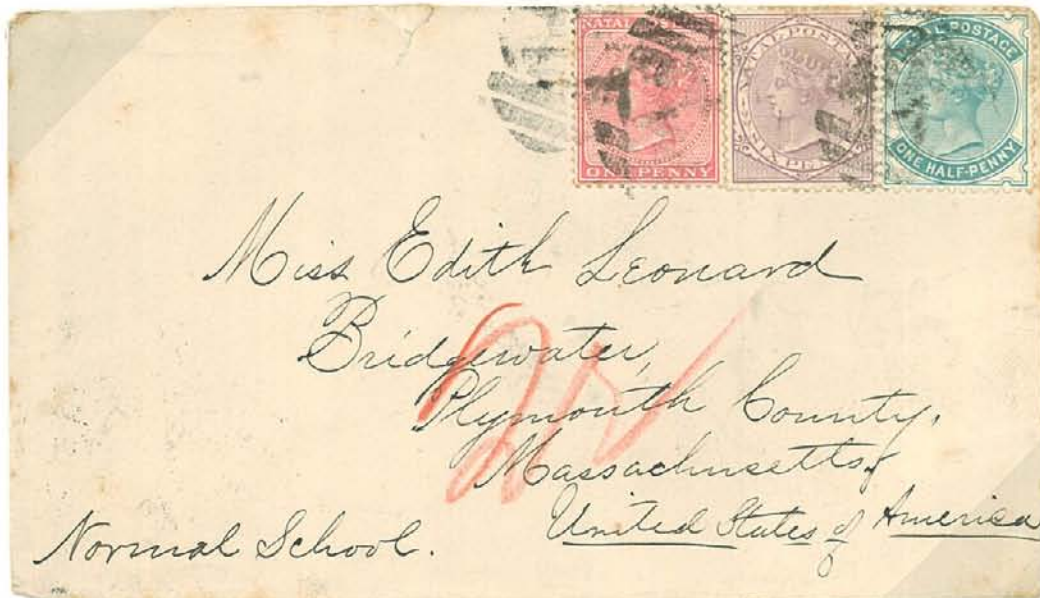 NATAL POSTAGE
ONE PENNY
NATAL POSTAGE
SIX PENCE
NATAL POSTAGE
ONE HALF-PENNY
Miss Edith Leonard
Bridgewater,
Plymouth County,
Massachusetts,
United States of America
Normal School.